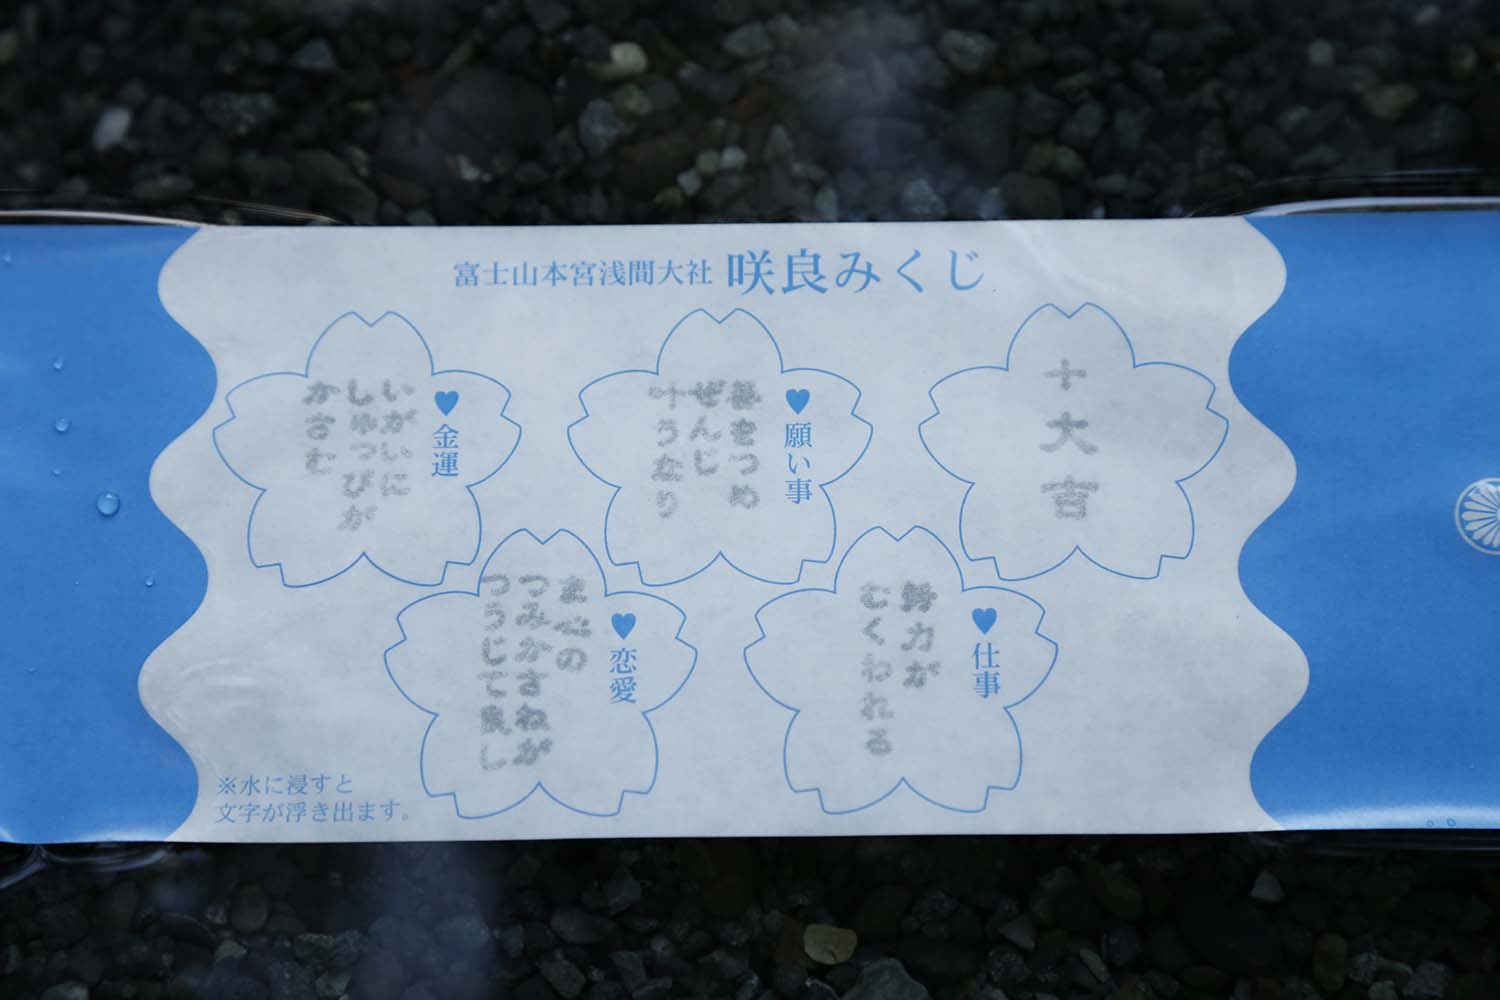 富士山本宮浅間大社 咲良みくじ
十大吉
♥願い事
夢をつめ
ぜんじ
叶うなり
♥金運
いがいに
しゅっぴが
かさむ
♥仕事
努力が
むくわれる
♥恋愛
真心の
つみかさねが
つうじて良し
※水に浸すと
文字が浮き出ます。